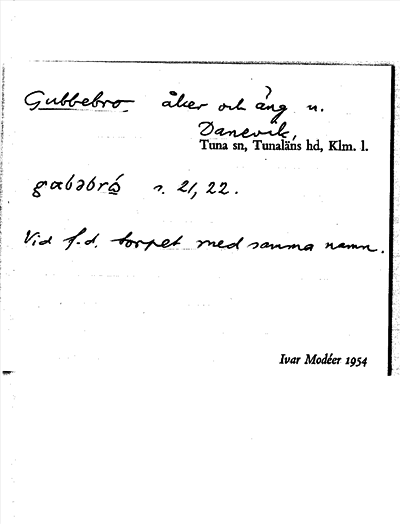 Gubbebro åker och äng n.
Danevik,
Tuna sn, Tunaläns hd, Klm. l.
gɷbəbró̲ s. 21, 22.
Vid f.d. torpet med samma namn.
Ivar Modéer 1954